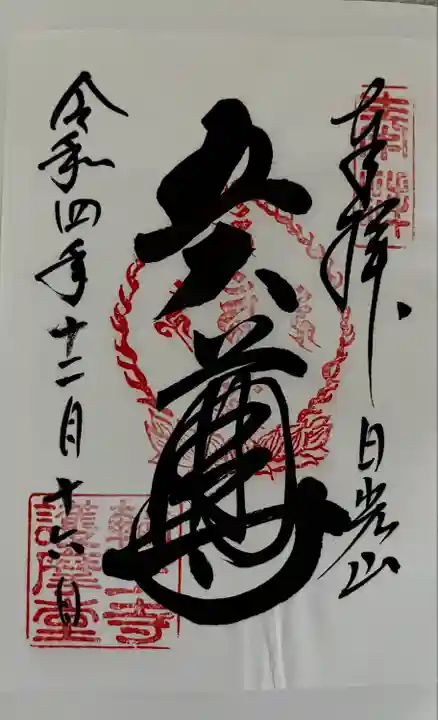 奉拝 日光山
五大尊
令和四年十二月十六日
輪王寺
護摩堂